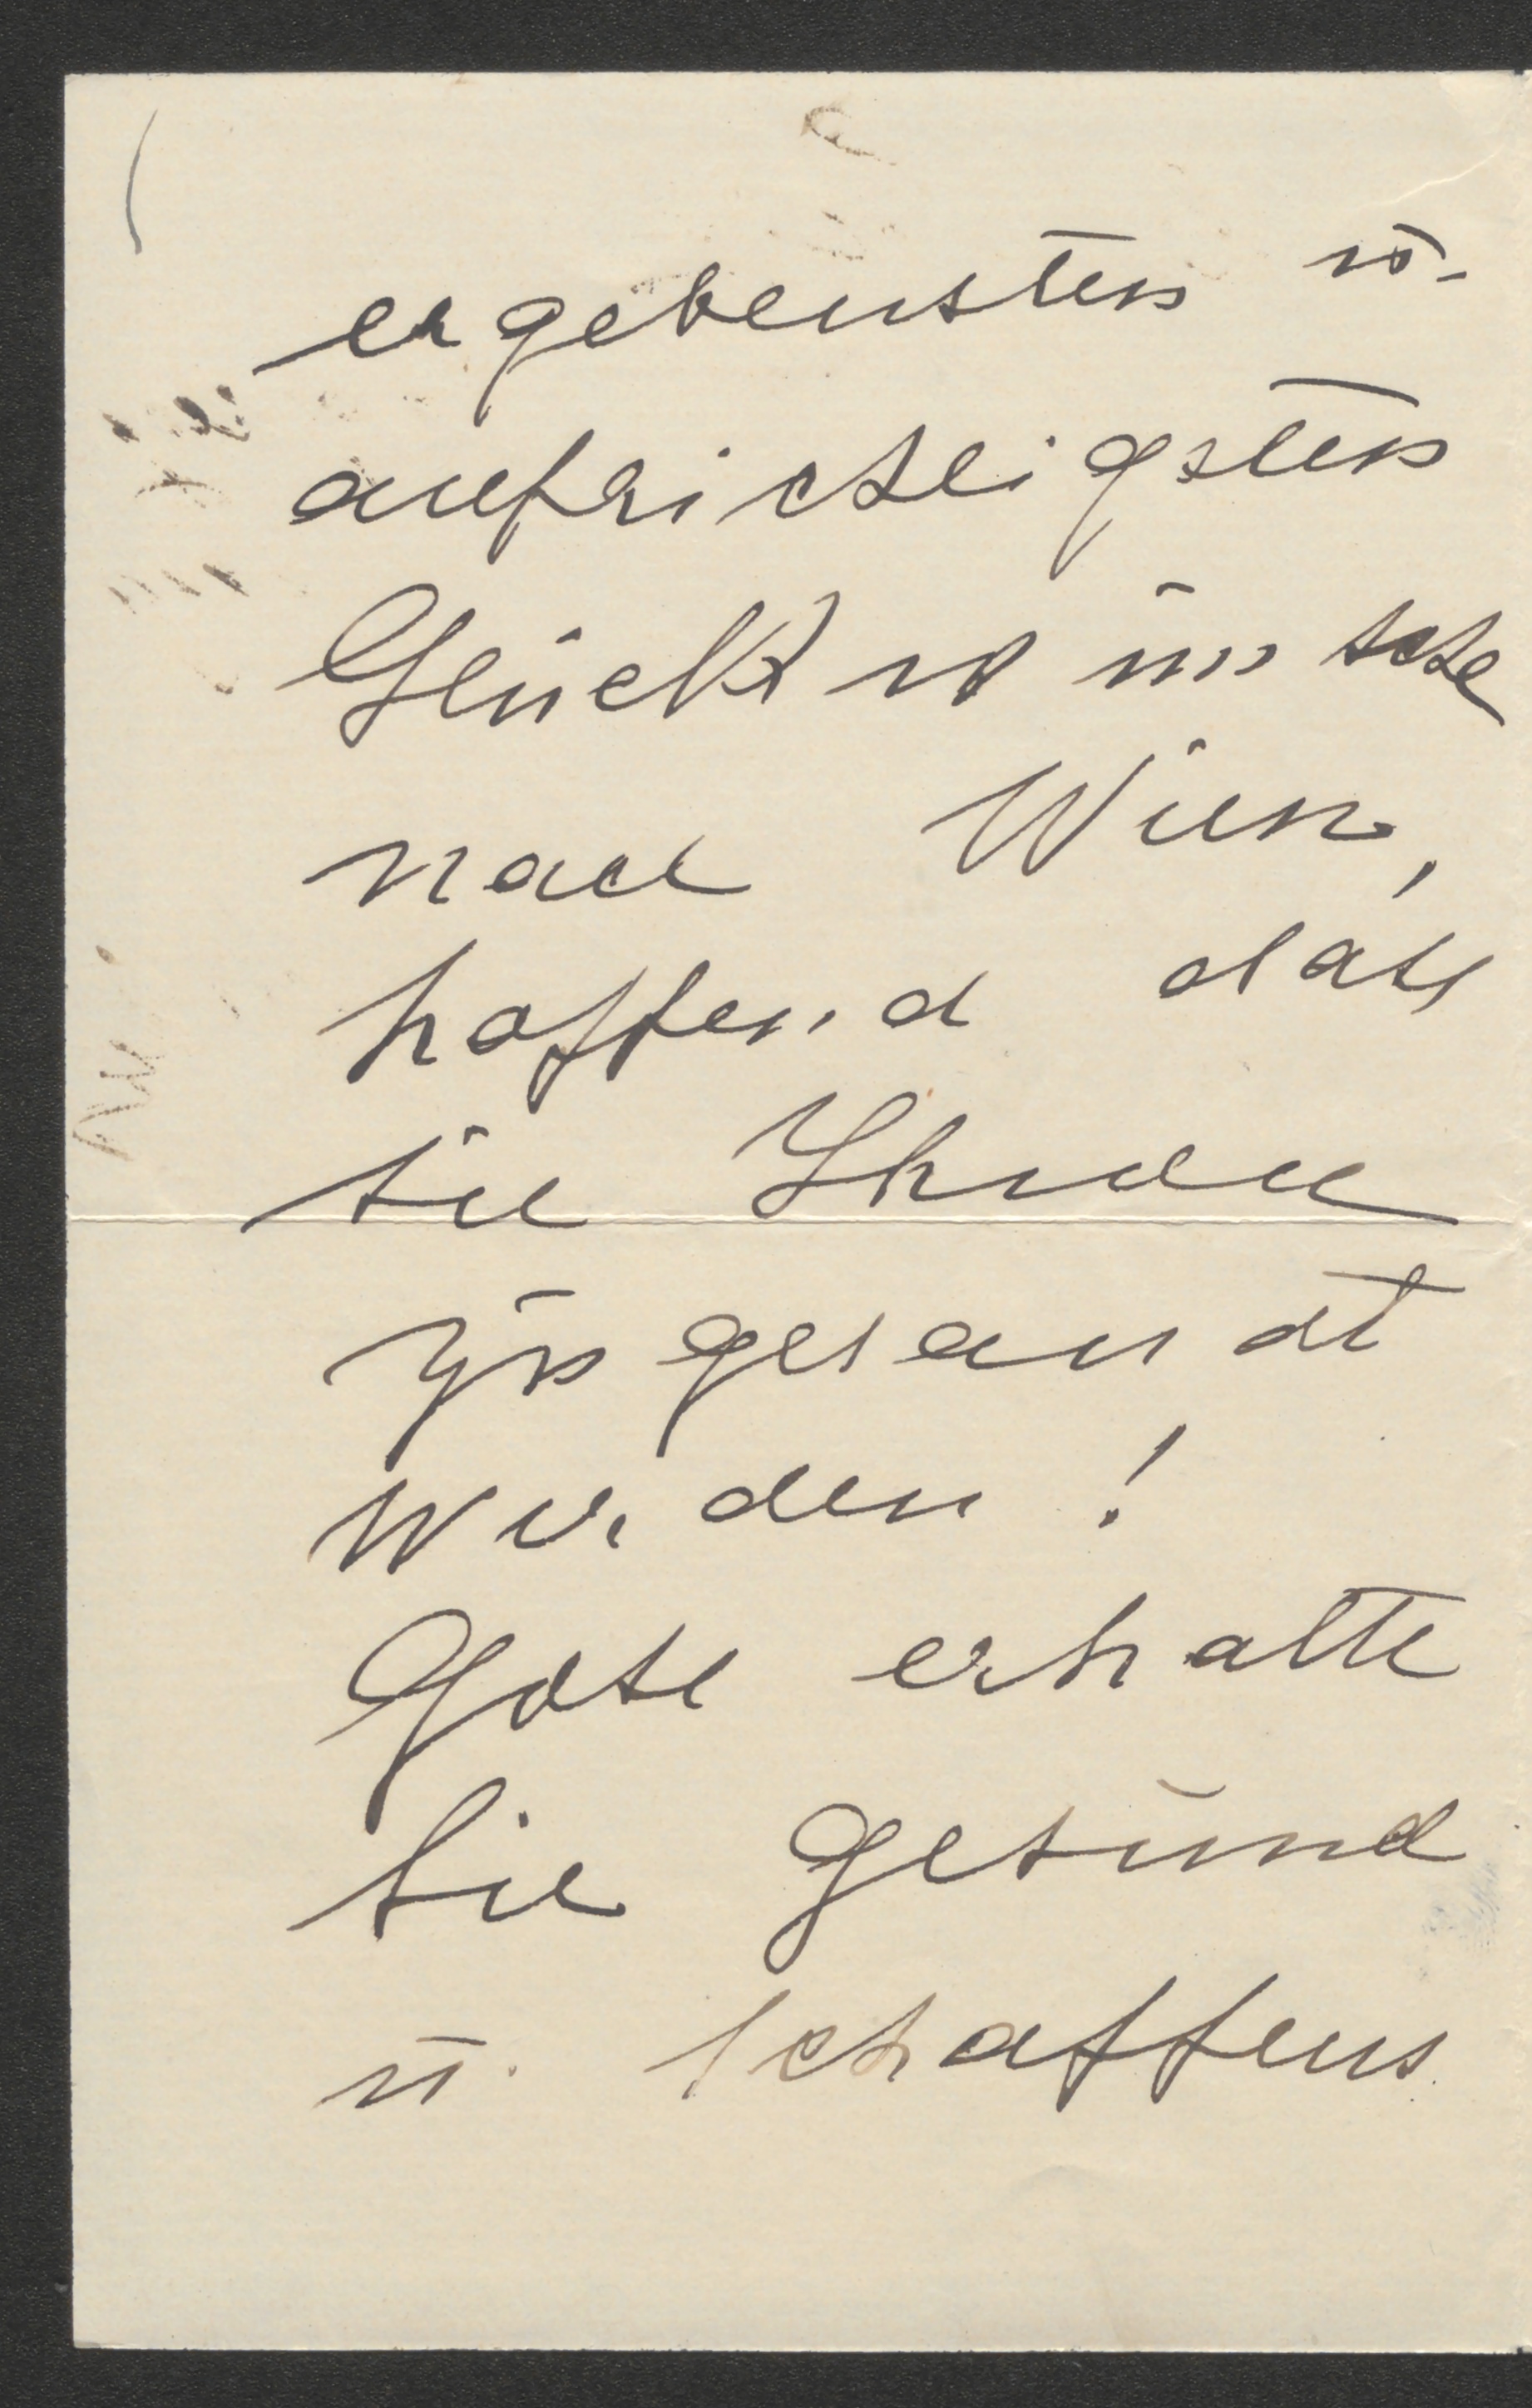 ergebensten u.
aufrichtigsten
Glückwünsche
nach Wien,
hoffend dass
sie Ihnen
zugesandt
werden!
Gott erhalte
Sie gesund
u. schaffens